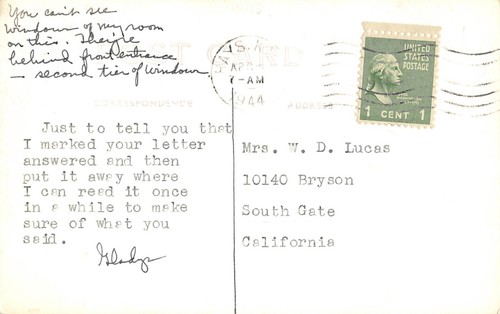 You can't see
windows of my room
on this. They're
behind front entrance
— second tier of windows
POST CARD
7-AM
1944
UNITED
STATES
POSTAGE
1 CENT 1
CORRESPONDENCE
ADDRESS
Just to tell you that
I marked your letter
answered and then
put it away where
I can read it once
in a while to make
sure of what you
said.
Gladys
Mrs. W. D. Lucas
10140 Bryson
South Gate
California